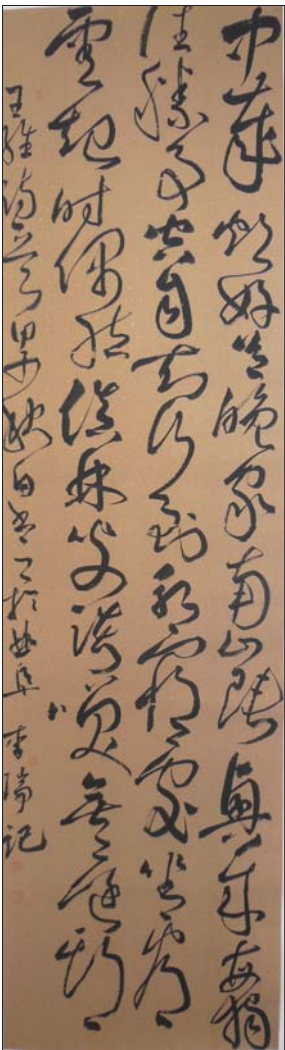 中歲頗好道晚家南山陲興來每獨
往勝事空自知行到水窮處坐看
雲起時偶然值林叟談笑無還期
王維詩 甲午秋日書於曲阜 李瑞記